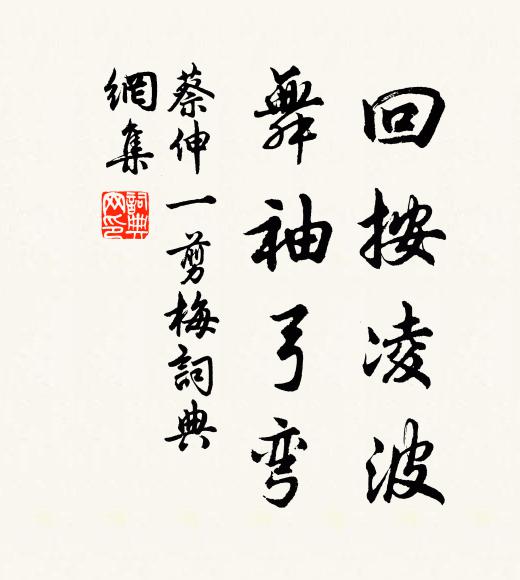 回按凌波
舞袖弓彎
蔡伸一剪梅詞典
網集
詞典網印